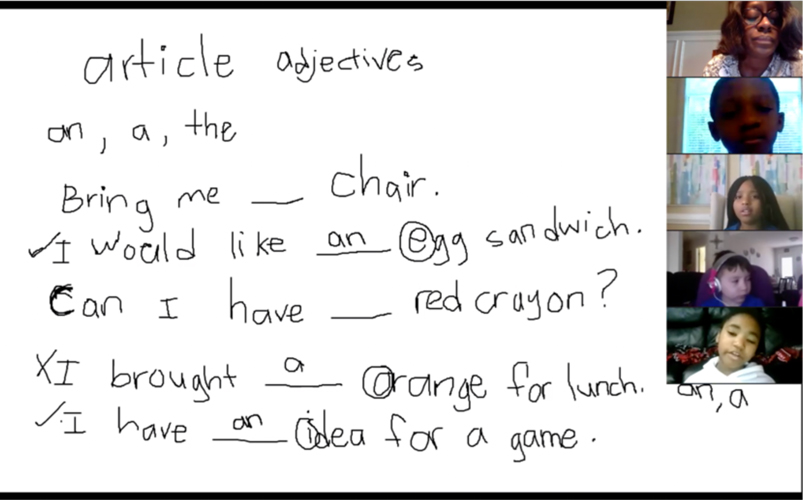 article adjectives
an, a, the
Bring me __ chair.
✓I would like an egg sandwich.
Can I have __ red crayon?
XI brought a orange for lunch.
an, a
✓I have an idea for a game.